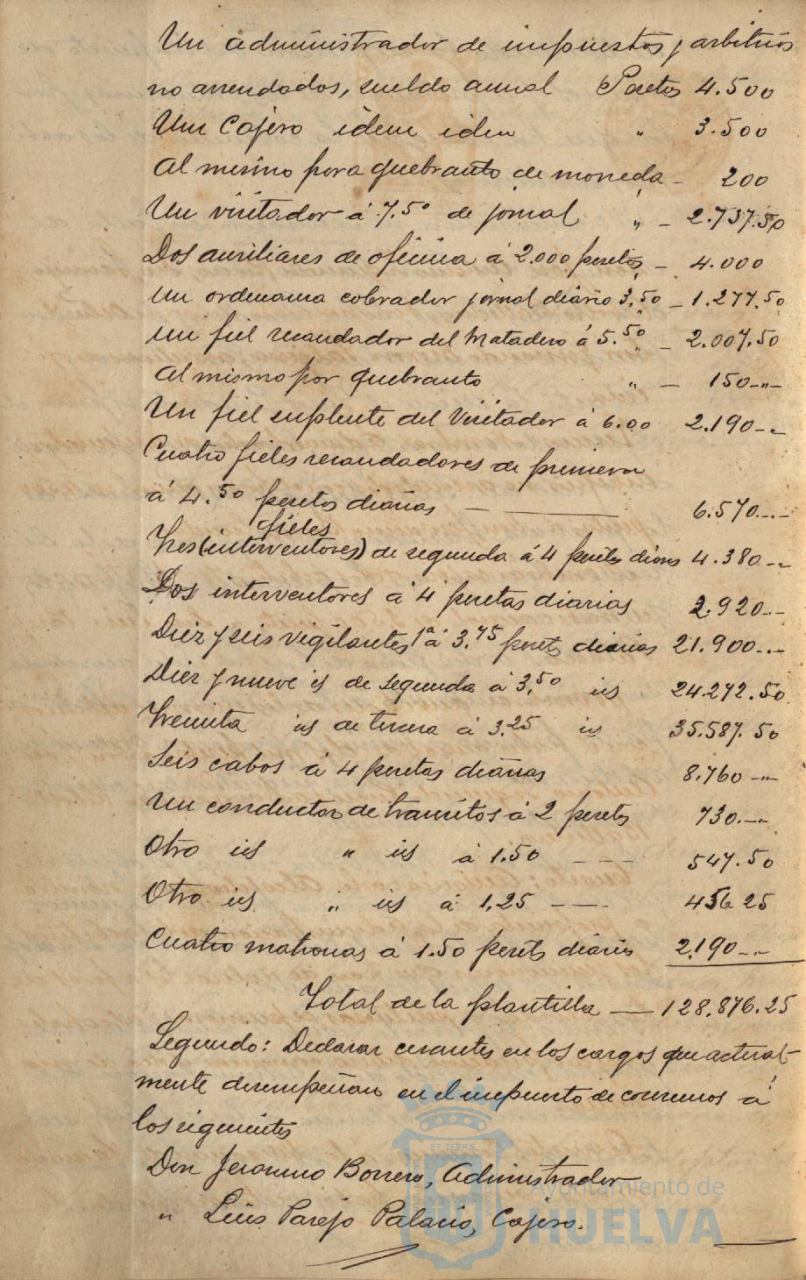 Un administrador de impuestos y arbitrios
no arrendados, sueldo anual Pesetas 4.500
Un Cajero idem idem " 3.500
Al mismo para quebranto de moneda - 200
Un visitador á 7.50 de jornal " - 2.737.50
Dos auxiliares de oficina á 2.000 pesetas - 4.000
Un ordenanza cobrador jornal diario 3,50 - 1.277.50
Un fiel recaudador del Matadero á 5.50 " - 2.007.50
Al mismo por quebranto " - 150-"-
Un fiel suplente del Visitador á 6.00 2.190-"-
Cuatro fieles recaudadores de primera
á 4.50 pesetas diarias - —— 6.570.-.-
fieles
Tres (interventores) de segunda á 4 pesets diarias 4.380-"-
Dos interventores á 4 pesetas diarias 2.920.-.-
Diez y seis vigilantes 1ª á 3,75 pesets diarias 21.900.-.-
Diez y nueve is de segunda á 3,50 is 24.272.50
Treinta is de tercera á 3.25 is 35.587.50
Seis cabos á 4 pesetas diarias 8.760-"-
Un conductor de transitos á 2 pesets 730.-"-
Otro is " is á 1.50 - - - 547.50
Otro is " is á 1,25 - — 456 25
Cuatro matronas á 1.50 pesets diarias 2.190-"-
Total de la plantilla — 128.876.25
Segundo: Declarar cesantes en los cargos que actual-
mente desempeñan en el impuesto de consumos á
los siguientes
Don Jeronimo Borrero, Administrador
" Luis Parejo Palacio, Cajero.
Ayuntamiento de
HUELVA